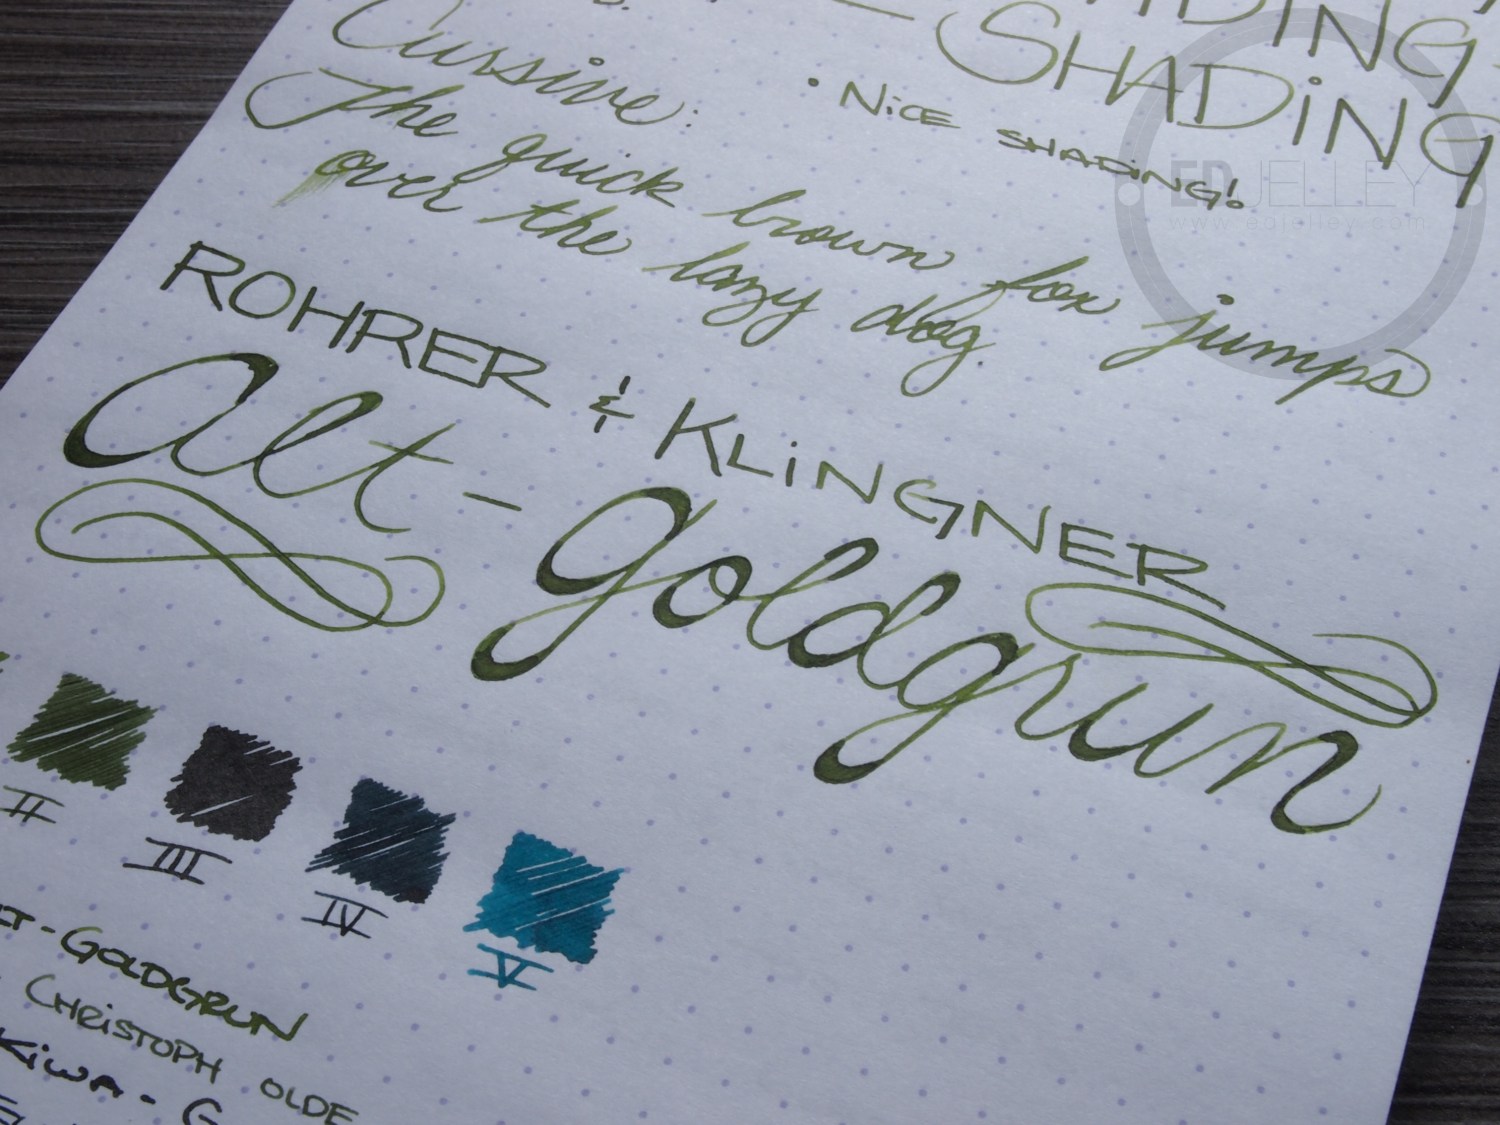 SHADING
• NiCE SHADiNG!
Cursive:
The quick brown fox jumps
over the lazy dog.
ROHRER & KLiNGNER
Alt-Goldgrun
II
III
IV
V
-GOLDGRUN
CHRiSTOPH OLDE
KiWA - G
ED JELLEY
www.edjelley.com